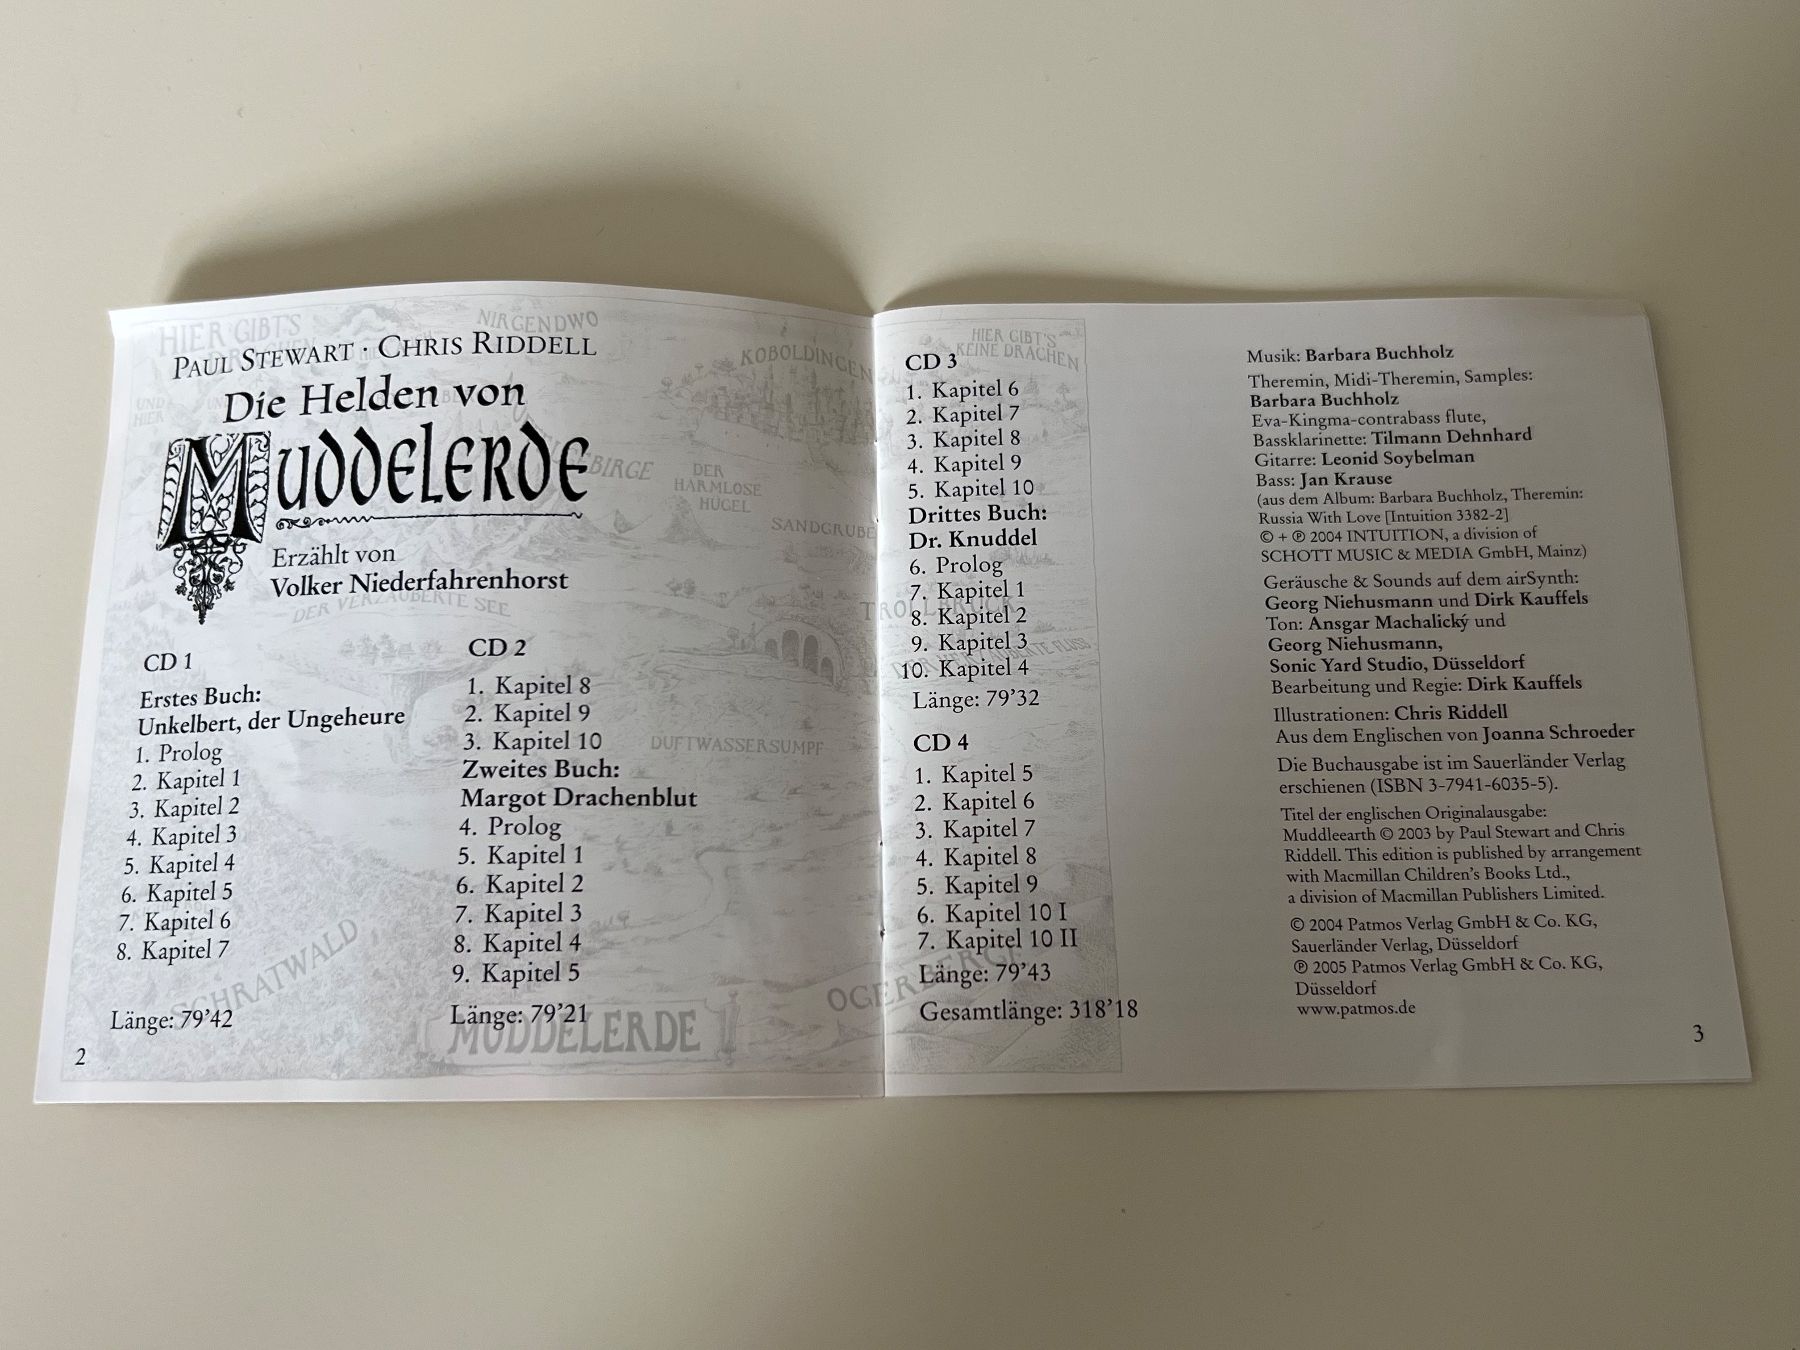 PAUL STEWART · CHRIS RIDDELL
Die Helden von
MUDDELERDE
Erzählt von
Volker Niederfahrenhorst
CD 1
Erstes Buch:
Unkelbert, der Ungeheure
1. Prolog
2. Kapitel 1
3. Kapitel 2
4. Kapitel 3
5. Kapitel 4
6. Kapitel 5
7. Kapitel 6
8. Kapitel 7
Länge: 79'42
2
CD 2
1. Kapitel 8
2. Kapitel 9
3. Kapitel 10
Zweites Buch:
Margot Drachenblut
4. Prolog
5. Kapitel 1
6. Kapitel 2
7. Kapitel 3
8. Kapitel 4
9. Kapitel 5
Länge: 79'21
HIER GIBT'S
NIRGENDWO
KOBOLDINGEN
UND
HIER
DER
HARMLOSE
HÜGEL
SANDGRUBE
DER VERZAUBERTE SEE
DUFTWASSERSUMPF
SCHRATWALD
MUDDELERDE
OGERBERGE
TROLLBRÜCK
HIER GIBT'S
KEINE DRACHEN
CD 3
1. Kapitel 6
2. Kapitel 7
3. Kapitel 8
4. Kapitel 9
5. Kapitel 10
Drittes Buch:
Dr. Knuddel
6. Prolog
7. Kapitel 1
8. Kapitel 2
9. Kapitel 3
10. Kapitel 4
Länge: 79'32
CD 4
1. Kapitel 5
2. Kapitel 6
3. Kapitel 7
4. Kapitel 8
5. Kapitel 9
6. Kapitel 10 I
7. Kapitel 10 II
Länge: 79'43
Gesamtlänge: 318'18
Musik: Barbara Buchholz
Theremin, Midi-Theremin, Samples:
Barbara Buchholz
Eva-Kingma-contrabass flute,
Bassklarinette: Tilmann Dehnhard
Gitarre: Leonid Soybelman
Bass: Jan Krause
(aus dem Album: Barbara Buchholz, Theremin:
Russia With Love [Intuition 3382-2]
© + ℗ 2004 INTUITION, a division of
SCHOTT MUSIC & MEDIA GmbH, Mainz)
Geräusche & Sounds auf dem airSynth:
Georg Niehusmann und Dirk Kauffels
Ton: Ansgar Machalický und
Georg Niehusmann,
Sonic Yard Studio, Düsseldorf
Bearbeitung und Regie: Dirk Kauffels
Illustrationen: Chris Riddell
Aus dem Englischen von Joanna Schroeder
Die Buchausgabe ist im Sauerländer Verlag
erschienen (ISBN 3-7941-6035-5).
Titel der englischen Originalausgabe:
Muddleearth © 2003 by Paul Stewart and Chris
Riddell. This edition is published by arrangement
with Macmillan Children's Books Ltd.,
a division of Macmillan Publishers Limited.
© 2004 Patmos Verlag GmbH & Co. KG,
Sauerländer Verlag, Düsseldorf
℗ 2005 Patmos Verlag GmbH & Co. KG,
Düsseldorf
www.patmos.de
3